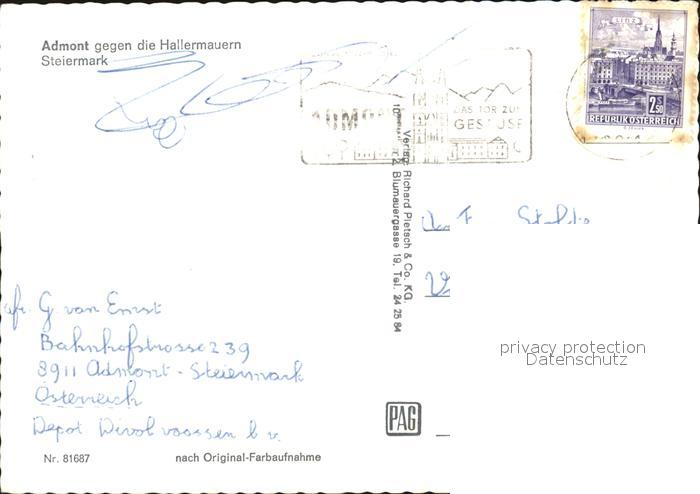 Admont gegen die Hallermauern
Steiermark
DAS TOR ZUM
GESÄUSE
LINZ
2S50
REPUBLIK ÖSTERREICH
Verlag: Richard Pietsch & Co. KG.
Blumauergasse 19, Tel. 24 25 84
afr. G van Ernst
Bahnhofstrosse 239
8911 Admont - Steiermark
Österreich
Depot
privacy protection
Datenschutz
PAG
Nr. 81687
nach Original-Farbaufnahme